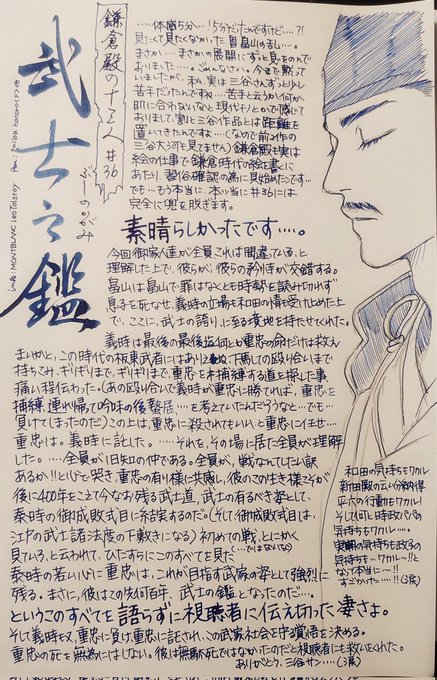 武士之鑑
ぶしのかがみ
Ink: MONTBLANC LEO TOLSTOY
鎌倉殿の十三人 #36
‥‥体感5分‥‥！5分だったんですけど‥‥?!
見たくて見たくなかった畠山の乱‥‥。
まさか‥‥まさかの展開にずっと息をのんで
おりました‥‥。ごめんなさい。今まで黙って
いましたが、私、実は三谷さんずっと少し
苦手だったんですね‥‥苦手と云うか何か
肌に合わないなと現代モノとかで感じて
おりまして割と三谷作品とは距離を
置いてきたんですよ‥‥(なので前2作の
三谷大河を見てません)鎌倉殿も実は
絵の仕事で鎌倉時代の絵を書くに
あたり、習俗確認の為に見始めたんです…
でも‥‥もう本当に、本ッ当に#36には
完全に兜を脱ぎます。
素晴らしかったです‥‥。
今回御家人達が全員これは間違ている、と
理解した上で、彼らが、彼らの矜り寺が交錯する。
畠山は畠山で罪はなくとも時勢を読み切れず
息子を死なせ、義時の立場も和田の情も受け止めた上
で、ここに、武士の誇り、に至る境地を持たせてくれた。
義時は最後の最後迄何とか重忠の命だけは救え
まいかと、この時代の板東武者にはあり得ぬ下馬しての殴り合いまで
持ちこみ、ギリギリまで、ギリギリまで、重忠を"捕縛する道を探した事、
痛い程伝わった。(あの殴り合いで義時が重忠に勝てれば、重忠を
捕縛、連れ帰って吟味の後蟄居‥‥を考えていたんだろうなと…でも…
負けてしまったのだ)この上は、重忠に殺されてもいい、と重忠に任せ…
重忠は。義時に託した。‥‥それを、その場に居た全員が理解
した。‥‥全員が旧知の仲である。全員が、戦なんてしたい訳
あるか!!と心で哭き、重忠の有り様に共感し、彼のこの生き様こそが
後に400年をこえて今なお残る武士道、武士の有るべき姿として、
泰時の御成敗式目に結実するのだ。(そして御成敗式目は、
江戸の武士諸法度の下敷きになる)初めての戦、とにかく
見ている、と云われて、ひたすらにこのすべてを見た
…ではないな)
泰時の若い心に重忠は、これが目指す武家の姿として強烈に
残る。まさに、彼はこの先何百年、武士の鑑となったのだ‥‥。
というこのすべてを語らずに視聴者に伝え切った凄さよ。
そして義時も又、重忠に負け重忠に託され、この武家社会を守る覚悟を決める。
重忠の死を無為にはしない。彼は無駄死ではなかったのだと視聴者にも救いをくれた。
ありがとう、三谷サン‥‥(涙)
和田の気持ちもワカル
新田殿の云い分も納得
平六の行動もワカル!
そして何と時政パパの
気持ちもワカル‥‥。
実朝の気持ちも政子の
気持ちも…ワカル〜!!と
なって本当に…!!
すごかった‥‥!!(涙)